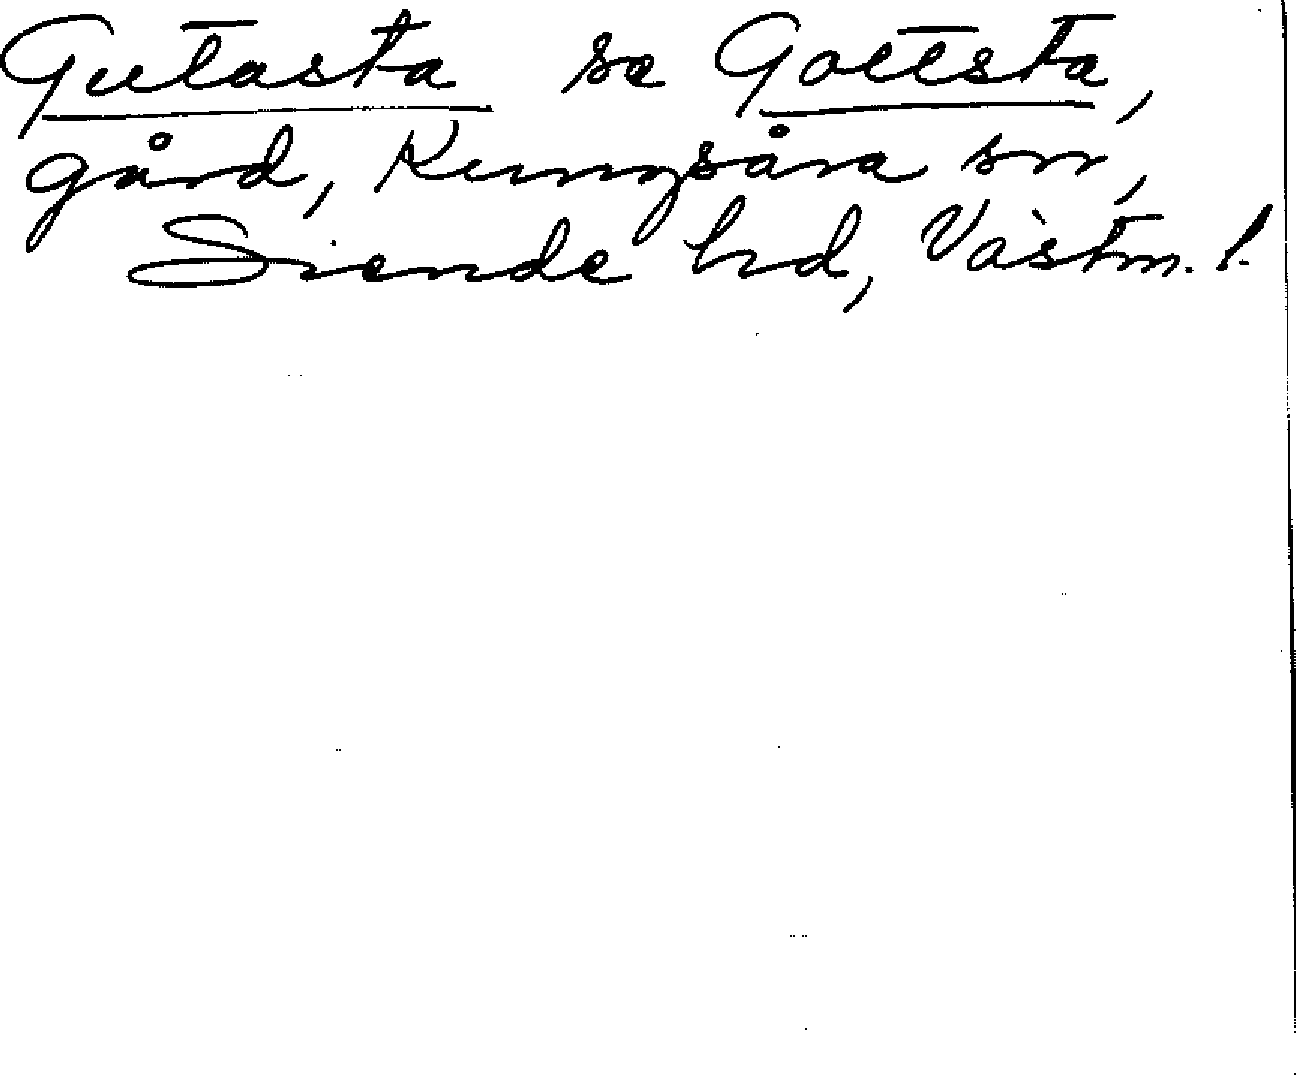 Gutasta se Gottsta,
gård, Kungsåra sn,
Siende hd, Västm. l.